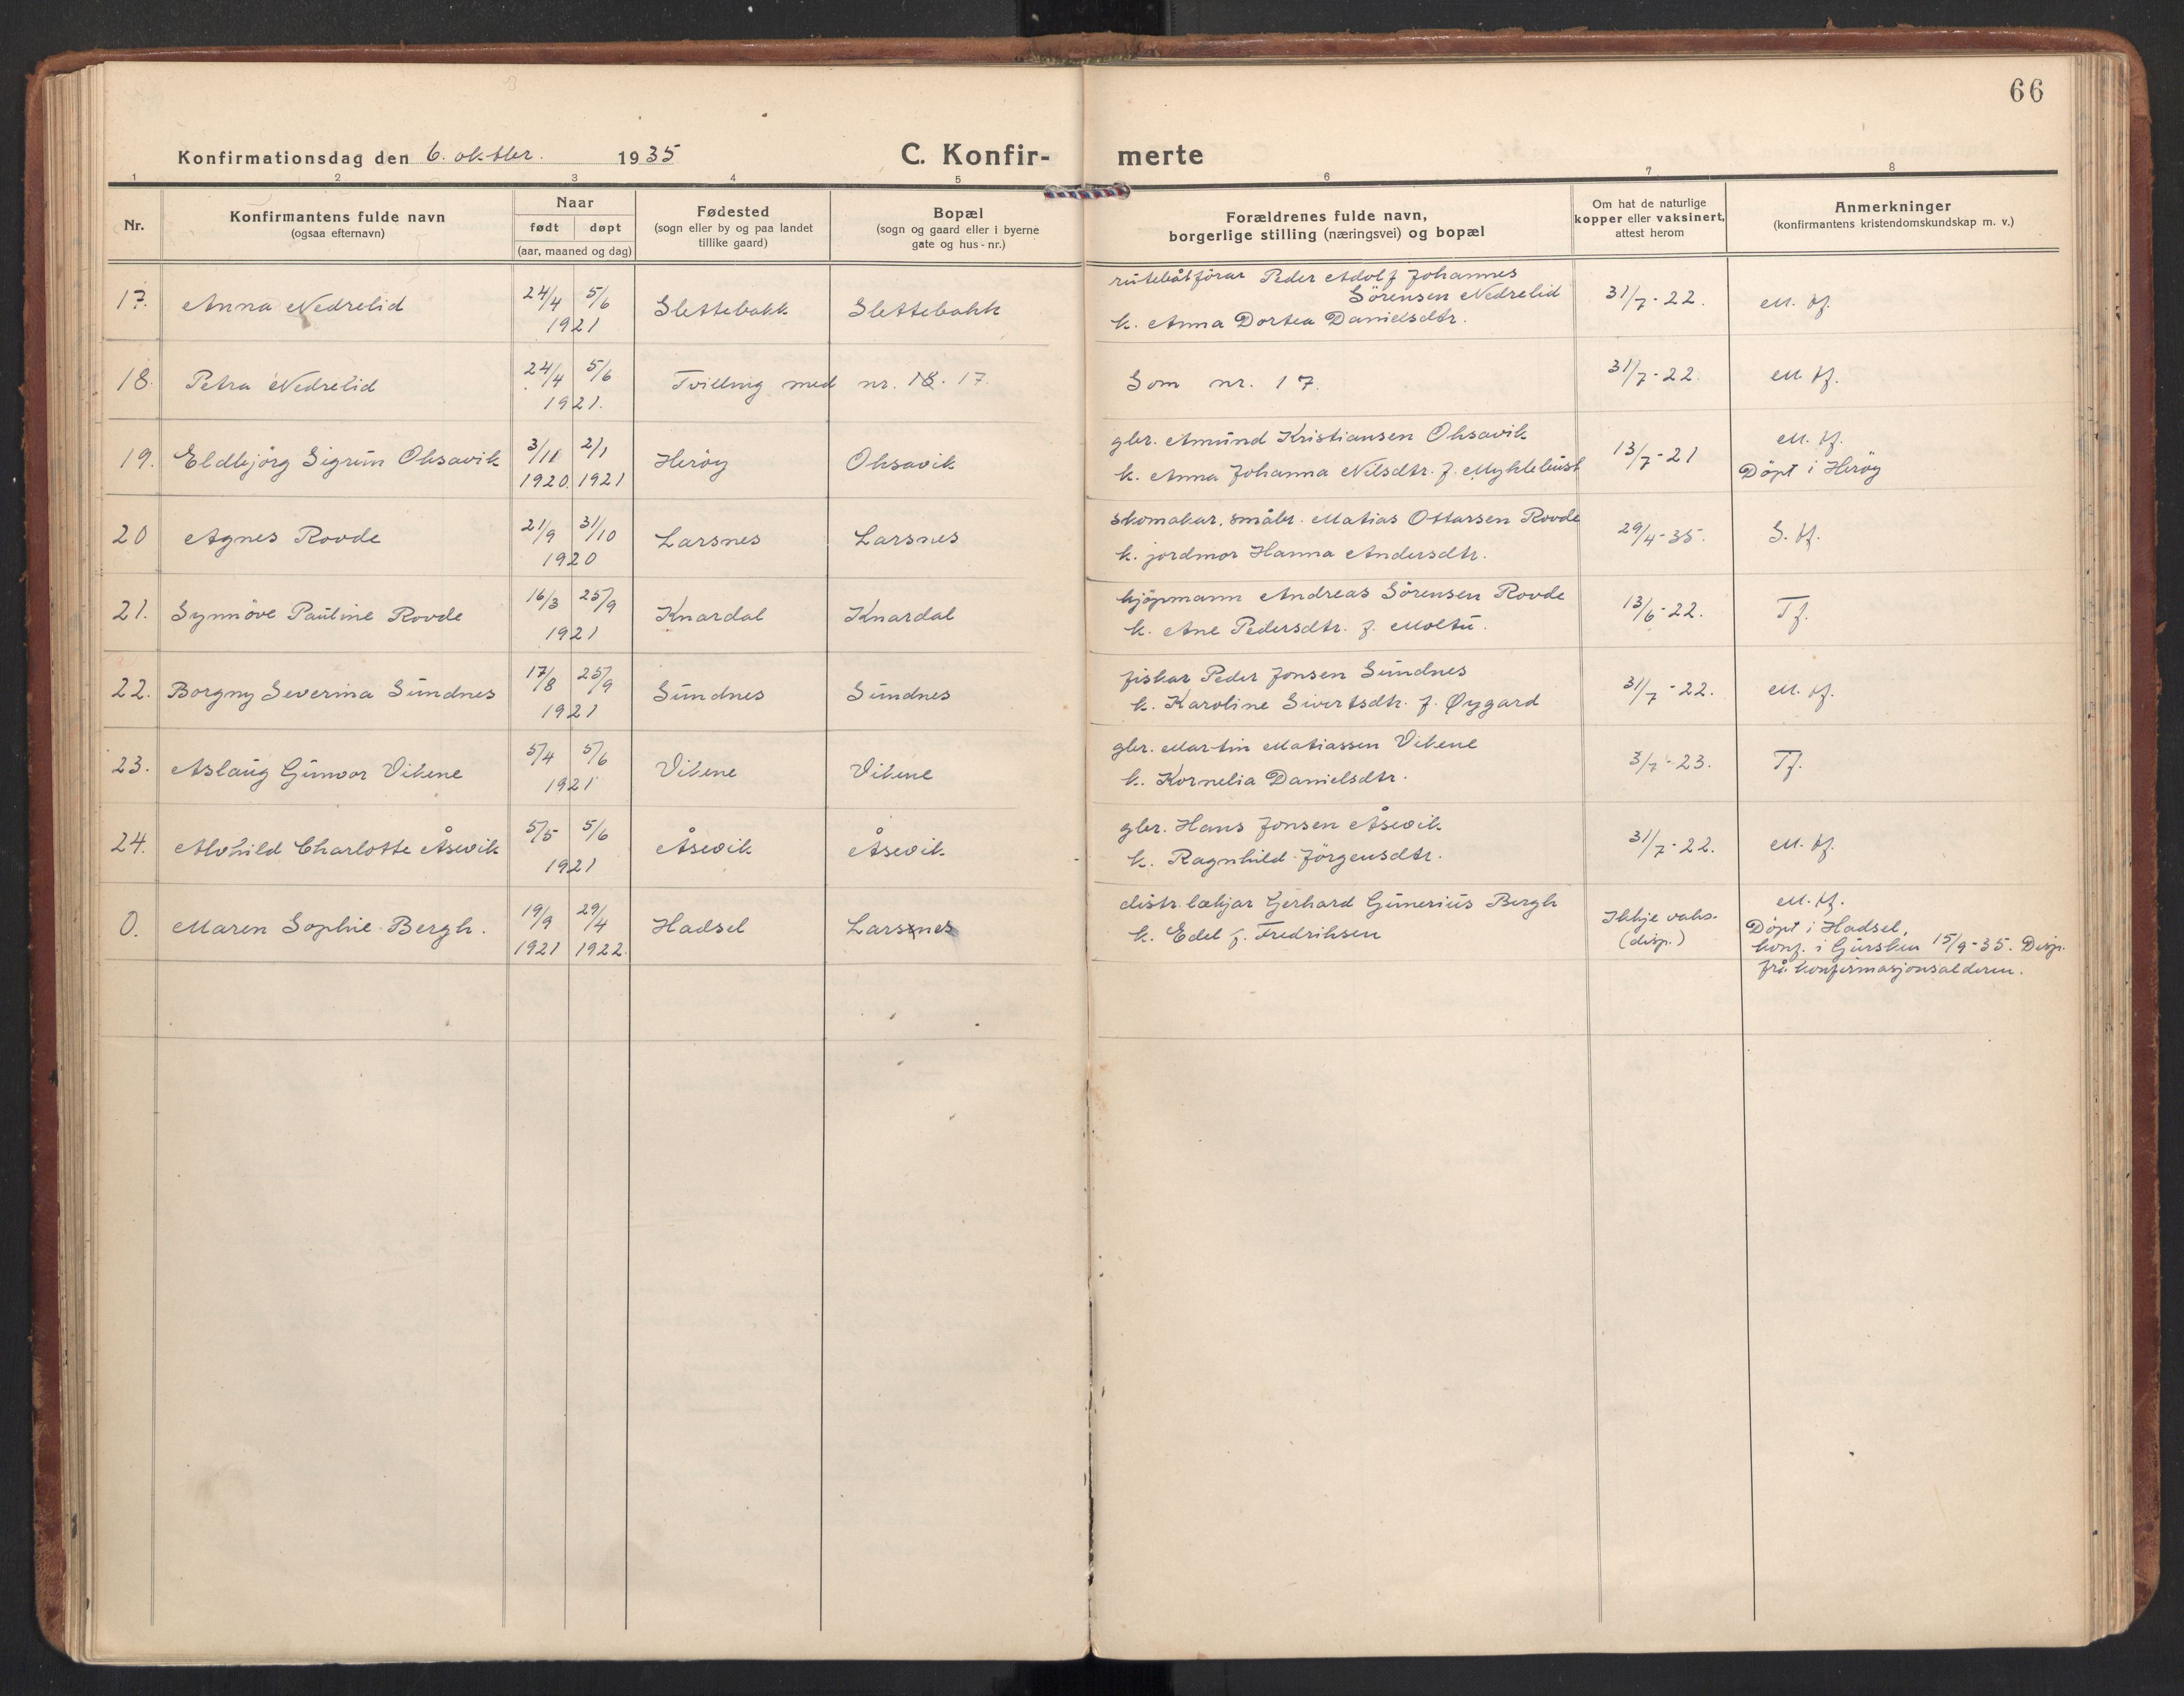 66
Konfirmationsdag den 6. oktbr. 1935
C. Konfir- merte
1 2 3 4 5 6 7 8
Nr.
Konfirmantens fulde navn
(ogsaa efternavn)
Naar
født døpt
(aar, maaned og dag)
Fødested
(sogn eller by og paa landet
tillike gaard)
Bopæl
(sogn og gaard eller i byerne
gate og hus-nr.)
Forældrenes fulde navn,
borgerlige stilling (næringsvei) og bopæl
Om hat de naturlige
kopper eller vaksinert,
attest herom
Anmerkninger
(konfirmantens kristendomskundskap m. v.)
17. Anna Nedrelid 24/4 5/6 1921 Slettebakk Slettebakk
rutebåtförar Peder Adolf Johannes
Sörensen Nedrelid
k. Anna Dortea Danielsdtr.
31/7-22. M. tf.
18. Petra Nedrelid 24/4 5/6 1921. Tvilling med nr. 18. 17.
Som nr. 17.
31/7-22. M. tf.
19. Eldbjörg Sigrun Oksavik 3/11 1920. 2/1 1921 Heröy Oksavik
gbr. Amund Kristiansen Oksavik
k. Anna Johanna Nilsdtr. f. Myklebust
13/7-21 M. tf.
Döpt i Heröy
20 Agnes Rovde 21/9 31/10 1920 Larsnes Larsnes
skomakar, småbr. Matias Ottarsen Rovde
k. jordmor Hanna Andersdtr.
29/4-35. S. tf.
21. Synnöve Pauline Rovde 16/3 25/9 1921 Knardal Knardal
kjöpmann Andreas Sörensen Rovde
k. Ane Pedersdtr. f. Moltu.
13/6-22. Tf.
22. Borgny Severina Sundnes 17/8 25/9 1921 Sundnes Sundnes
fiskar Peder Jonsen Sundnes
k. Karoline Sivertsdtr. f. Øygard
31/7-22. M. tf.
23. Aslaug Gunvor Vikene 5/4 5/6 1921 Vikene Vikene
gbr. Martin Matiassen Vikene
k. Kornelia Danielsdtr.
3/7-23. Tf.
24. Alvhild Charlotte Åsevik 5/5 5/6 1921 Åsevik Åsevik
gbr. Hans Jonsen Åsevik
k. Ragnhild Jörgensdtr.
31/7-22. M. tf.
0. Maren Sophie Bergh. 19/9 1921 29/4 1922. Hadsel Larsnes
distr. lækjar Gerhard Gunerius Bergh
k. Edel f. Fredriksen
Ikkje vaks.
(disp.)
M. tf.
Döpt i Hadsel,
konf. i Gursken 15/9-35. Disp.
frå konfirmasjonsalderen.